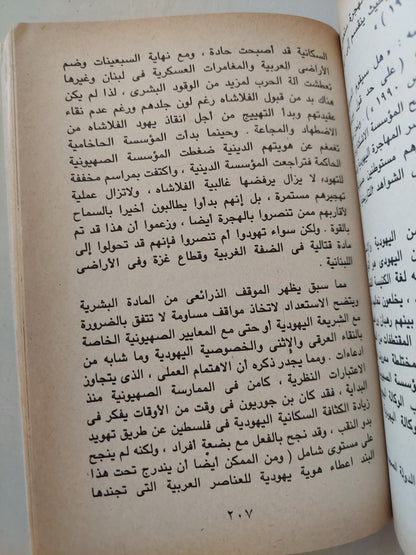 السكانية قد أصبحت حادة ، ومع نهاية السبعينات وضم
الأراضى العربية والمغامرات العسكرية فى لبنان وغيرها
تعطشت آلة الحرب لمزيد من الوقود البشرى ، لذا لم يكن
هناك بد من قبول الفلاشاه رغم لون جلدهم ورغم عدم نقاء
عقيدتهم وبدأ التهييج من أجل انقاذ يهود الفلاشاه من
الاضطهاد والمجاعة . وحينما بدأت المؤسسة الحاخامية
تغمغم عن هويتهم الدينية ضغطت المؤسسة الصهيونية
الحاكمة فتراجعت المؤسسة الدينية ، واكتفت بمراسم مخففة
للتهود، لا يزال يرفضها غالبية الفلاشاه، ولاتزال عملية
تهجيرهم مستمرة ، بل إنهم بدأوا يطالبون أخيرا بالسماح
لأقاربهم ممن تنصروا بالهجرة أيضا ، وزعموا أن هذا قد تم
بالقوة . ولكن سواء تهودوا أم تنصروا فإنهم قد تحولوا إلى
مادة قتالية فى الضفة الغربية وقطاع غزة وفى الأراضى
اللبنانية .
مما سبق يظهر الموقف الذرائعى من المادة البشرية
ويتضح الاستعداد لاتخاذ مواقف مساومة لا تتفق بالضرورة
مع الشريعة اليهودية أو حتى مع المعايير الصهيونية الخاصة
بالنقاء العرقى والإثنى والخصوصية اليهودية وما شابه من
ادعاءات . ومما يجدر ذكره أن الاهتمام العملى ، الذى يتجاوز
الاعتبارات النظرية ، كامن فى الممارسة الصهيونية منذ
البداية ، فقد كان بن جوريون فى وقت من الأوقات يفكر فى
زيادة الكثافة السكانية اليهودية فى فلسطين عن طريق تهويد
بدو النقب ، وقد نجح بالفعل مع بضعة أفراد ، ولكنه لم ينجح
على مستوى شامل ( ومن الممكن أيضا أن يندرج تحت هذا
البند اعطاء هوية يهودية للعناصر العربية التى تجندها
٢٠٧